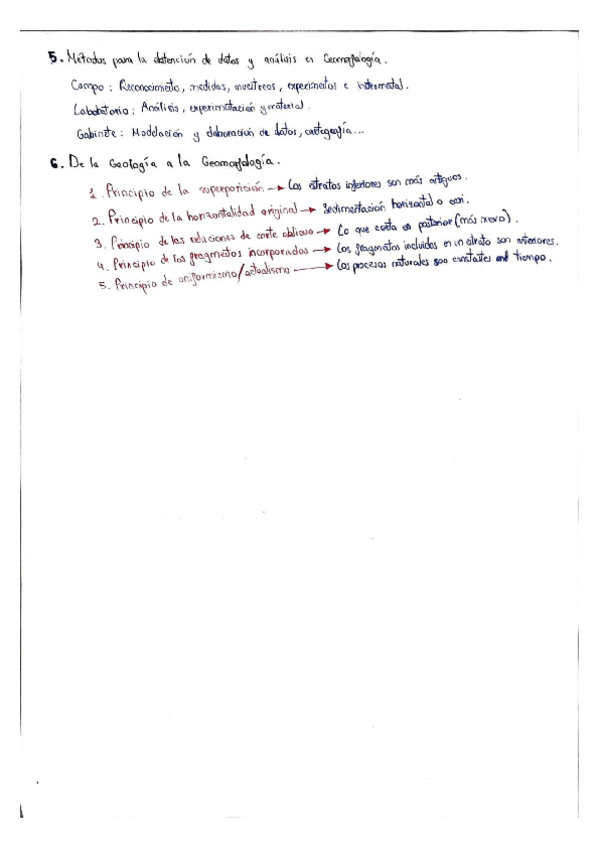 5. Métodos para la obtención de datos y análisis en Geomorfología.
Campo: Reconocimiento, medidas, muestreos, experimentos e instrumental.
Laboratorio: Análisis, experimentación y material.
Gabinete: Modelación y elaboración de datos, cartografía...
6. De la Geología a la Geomorfología.
1. Principio de la superposición → Los estratos inferiores son más antiguos.
2. Principio de la horizontalidad original → Sedimentación horizontal o casi.
3. Principio de las relaciones de corte oblicuo → Lo que corta es posterior (más nuevo).
4. Principio de los fragmentos incorporados → Los fragmentos incluidos en un estrato son anteriores.
5. Principio de uniformismo/actualismo → Los procesos naturales son constantes en el tiempo.